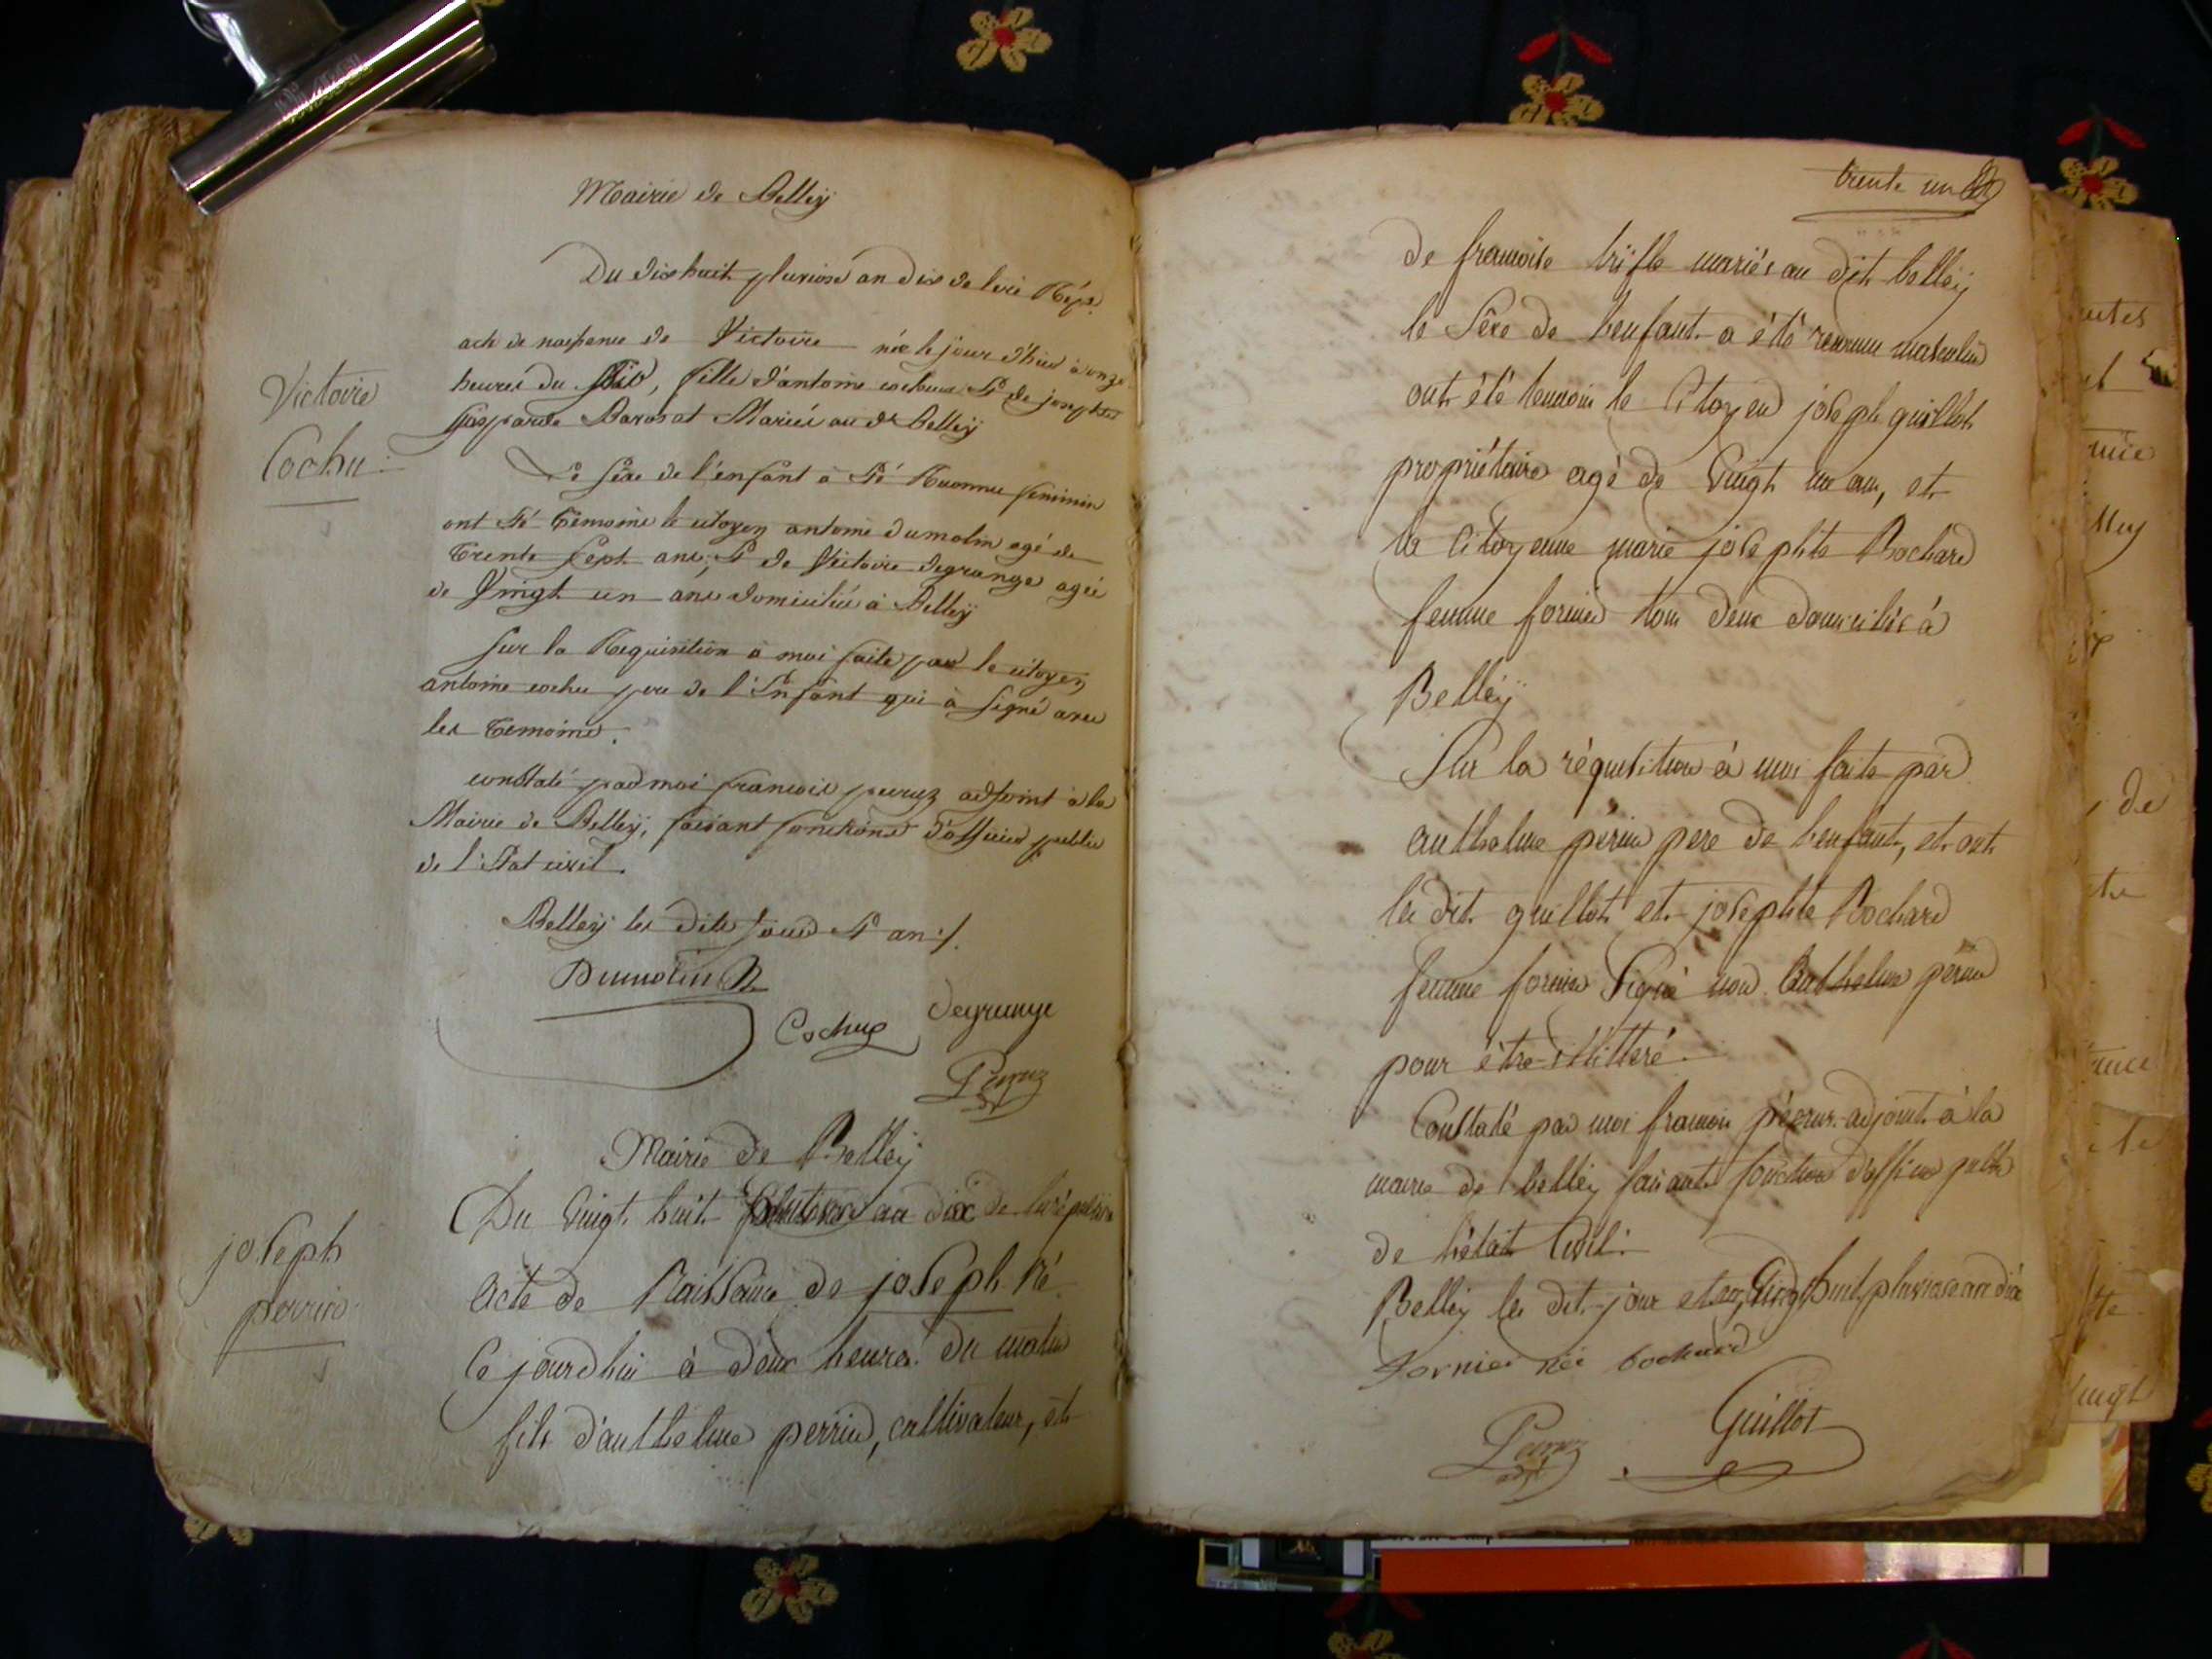 Mairie de Belleÿ
Du dix huit pluviose an dix de l'ere Rép.
acte de naissance de Victoire née le jour d'hier à onze
heures du soir, fille d'antoine cochu et de josephte
Gasparde Barosat Mariés au dt Belleÿ
Victoire
Cochu
Le sèxe de l'enfant à été Reconnu feminin
ont été temoins le citoyen antoine dumolin agé de
trente sept ans, et de Victoire degrange agée
de Vingt un ans domiciliés à Belleÿ
Sur la Requisition à moi faite par le citoyen
antoine cochu pere de l'Enfant qui à signé avec
les temoins.
constaté par moi francois peruz adjoint à la
Mairie de Belleÿ, faisant fonctions d'officier public
de l'Etat civil.
Belleÿ les dits jour et an
Dumolin
Cochu
degrange
Peruz
Mairie de Belleÿ
Du Vingt huit pluviose an dix de la république
joseph
perrin
Acte de Naissance de joseph Né
Ce jourdhui à deux heures du matin
fils d'anthelme perrin, cultivateur, et
trente un
de francoise mariés au dit belleÿ
le sèxe de lenfant a été reconnu masculin
ont été temoins le Citoyen joseph guillot
propriétaire agé de Vingt un ans, et
la Citoyenne marie josephte Bochard
femme fornier tous deux domiciliés à
Belleÿ
Sur la réquisition à moi faite par
anthelme périn pere de lenfant, et ont
les dit guillot et josephte Bochard
femme fornier Signé non Anthelme périn
pour être illitteré.
Constaté par moi francois péruz adjoint à la
mairie de belleÿ faisant fonction d'officier public
de l'état Civil.
Belleÿ les dit jour et an Vingt huit pluviose an dix
fornier née bochard
Peruz
Guillot